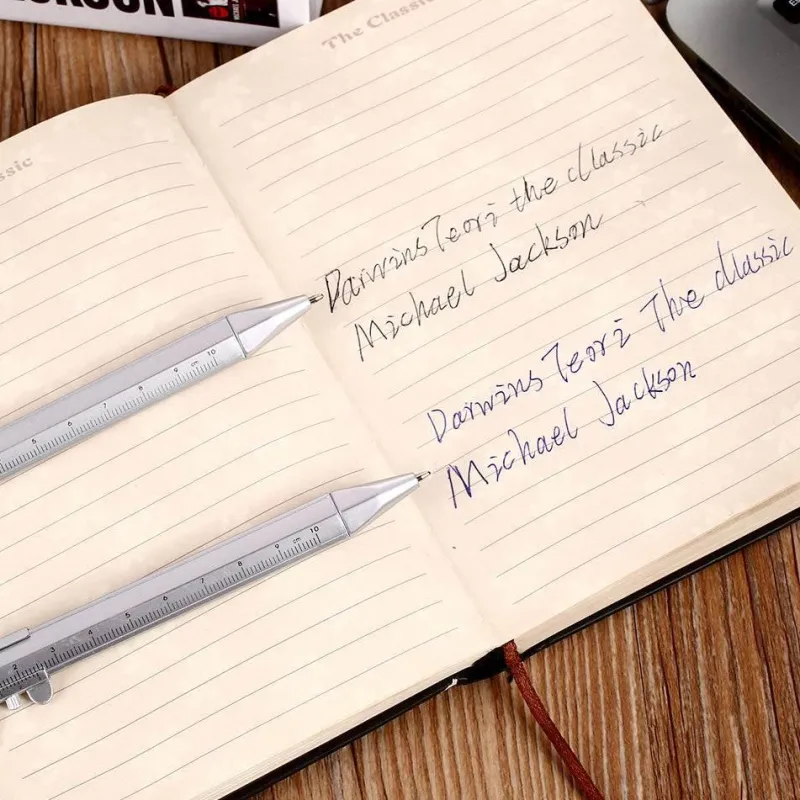 The Classic
Darwins Teori the classic
Michael Jackson
Darwins Teori The classic
Michael Jackson
5 6 7 8 9 cm 10
2 3 4 5 6 7 8 9 cm 10